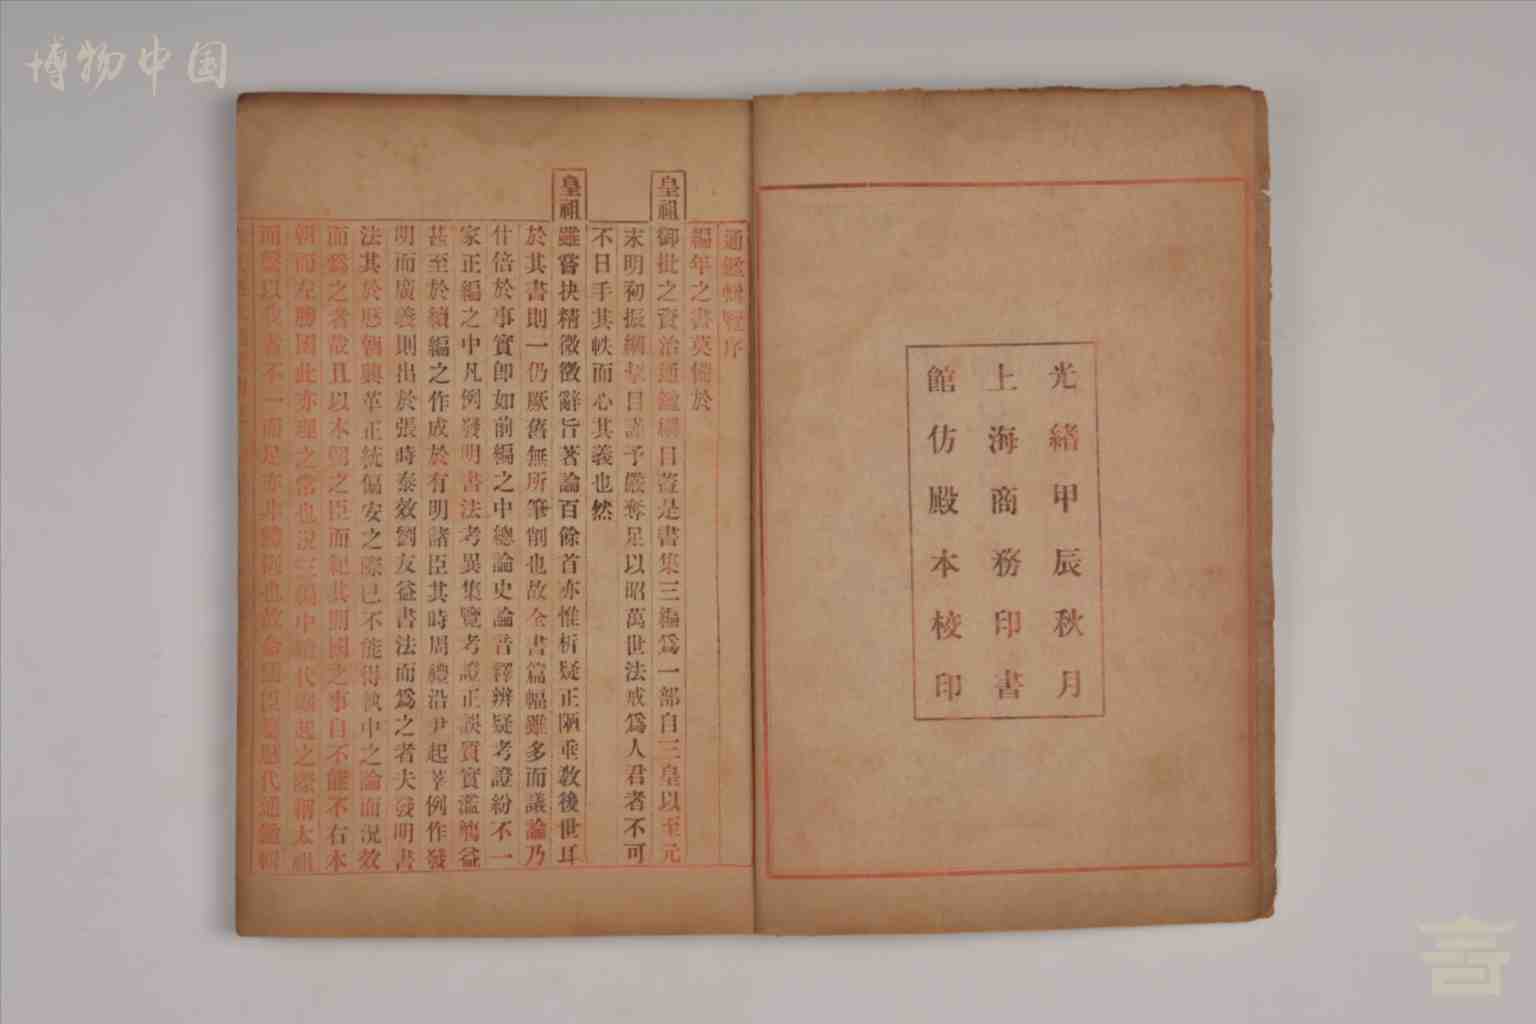 博物中国
光緒甲辰秋月
上海商務印書
館仿殿本校印
通鑑輯覽序
編年之書莫備於
皇祖御批之資治通鑑綱目葢是書集三編爲一部自三皇以至元
末明初振綱挈目謹予嚴奪足以昭萬世法戒爲人君者不可
不日手其帙而心其義也然
皇祖雖嘗抉精微徵辭旨著論百餘首亦惟析疑正陋垂教後世耳
於其書則一仍厥舊無所筆削也故全書篇幅雖多而議論乃
什倍於事實卽如前編之中總論史論音釋辨疑考證紛不一
家正編之中凡例發明書法考異集覽考證正誤質實濫觴益
甚至於續編之作成於有明諸臣其時周禮沿尹起莘例作發
明而廣義則出於張時泰效劉友益書法而爲之者夫發明書
法其於歷朝興革正統偏安之際已不能得執中之論而況效
而爲之者哉且以本朝之臣而紀其開國之事自不能不右本
朝而左勝國此亦理之常也況三編中代起之際稱太祖
而繫以我者不一而足亦非體例也故命臣纂歷代通鑑輯